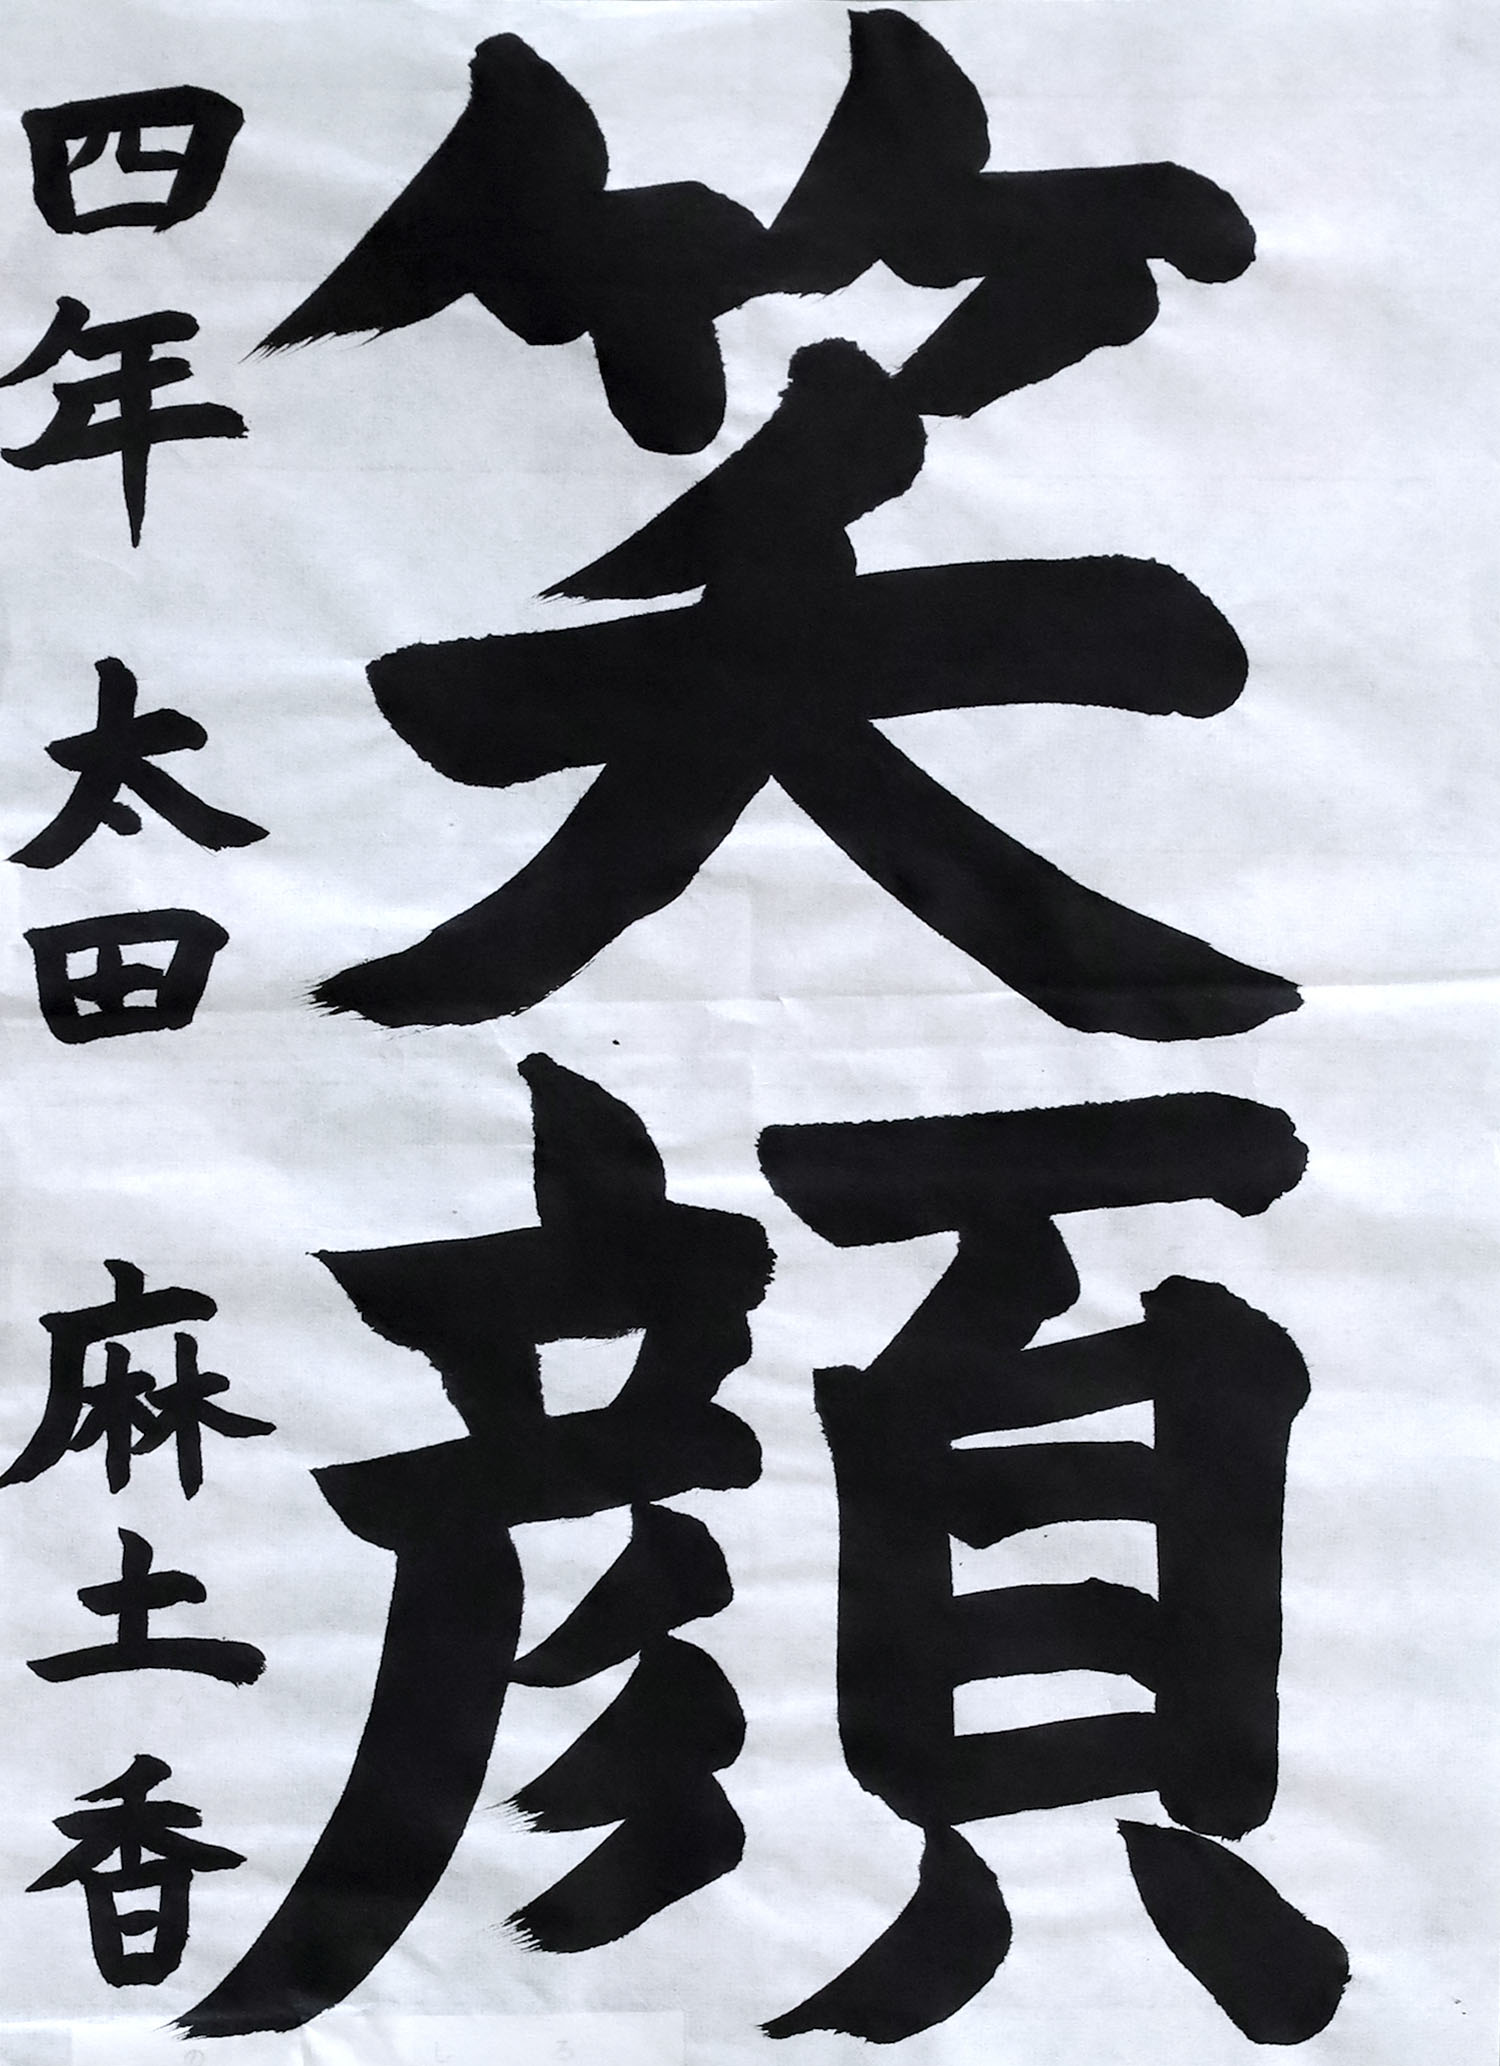 笑顔
四年 太田 麻土香